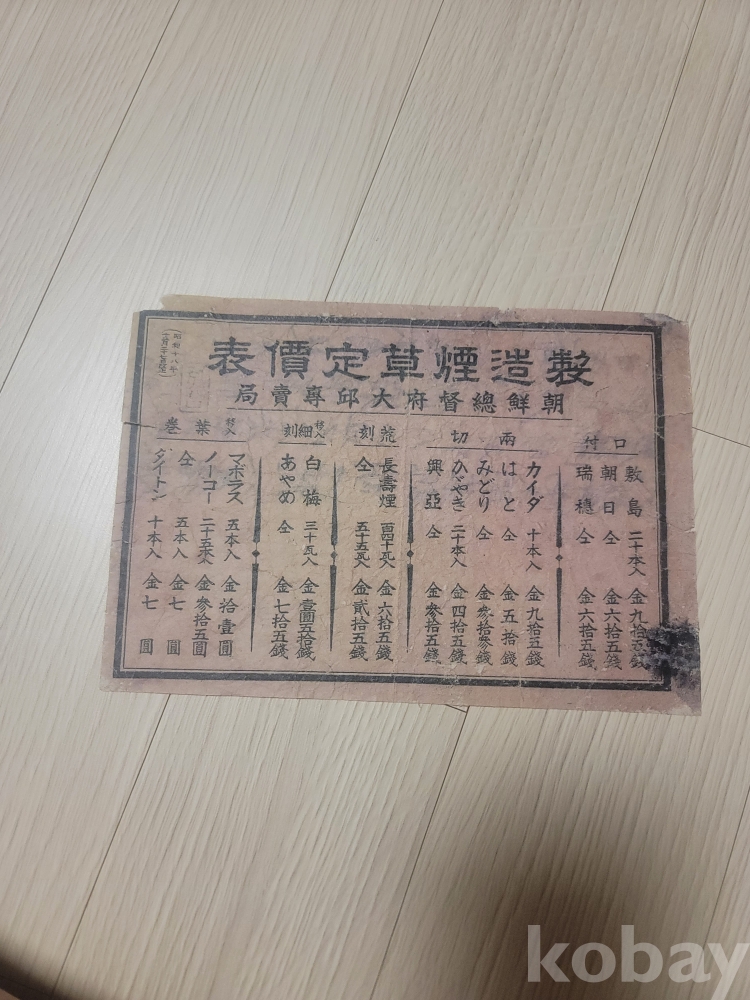 製造煙草定價表
朝鮮總督府大邱專賣局
口付
敷島 二十本入 金九拾五錢
朝日 仝 金六拾五錢
瑞穗 仝 金六拾五錢
兩切
カイダ 十本入 金九拾五錢
はと 仝 金五拾錢
みどり 仝 金參拾參錢
かゞやき 二十本入 金四拾五錢
興亞 仝 金參拾五錢
荒刻
長壽煙 百四十瓦入 金六拾五錢
仝 五十五瓦入 金貳拾五錢
細刻 移入
白梅 三十瓦入 金壹圓五拾錢
あやめ 仝 金七拾五錢
葉卷 移入
マボラス 五本入 金拾壹圓
ノーコー 二十五本入 金參拾五圓
仝 五本入 金七圓
タイトン 十本入 金七圓
昭和十八年
kobay